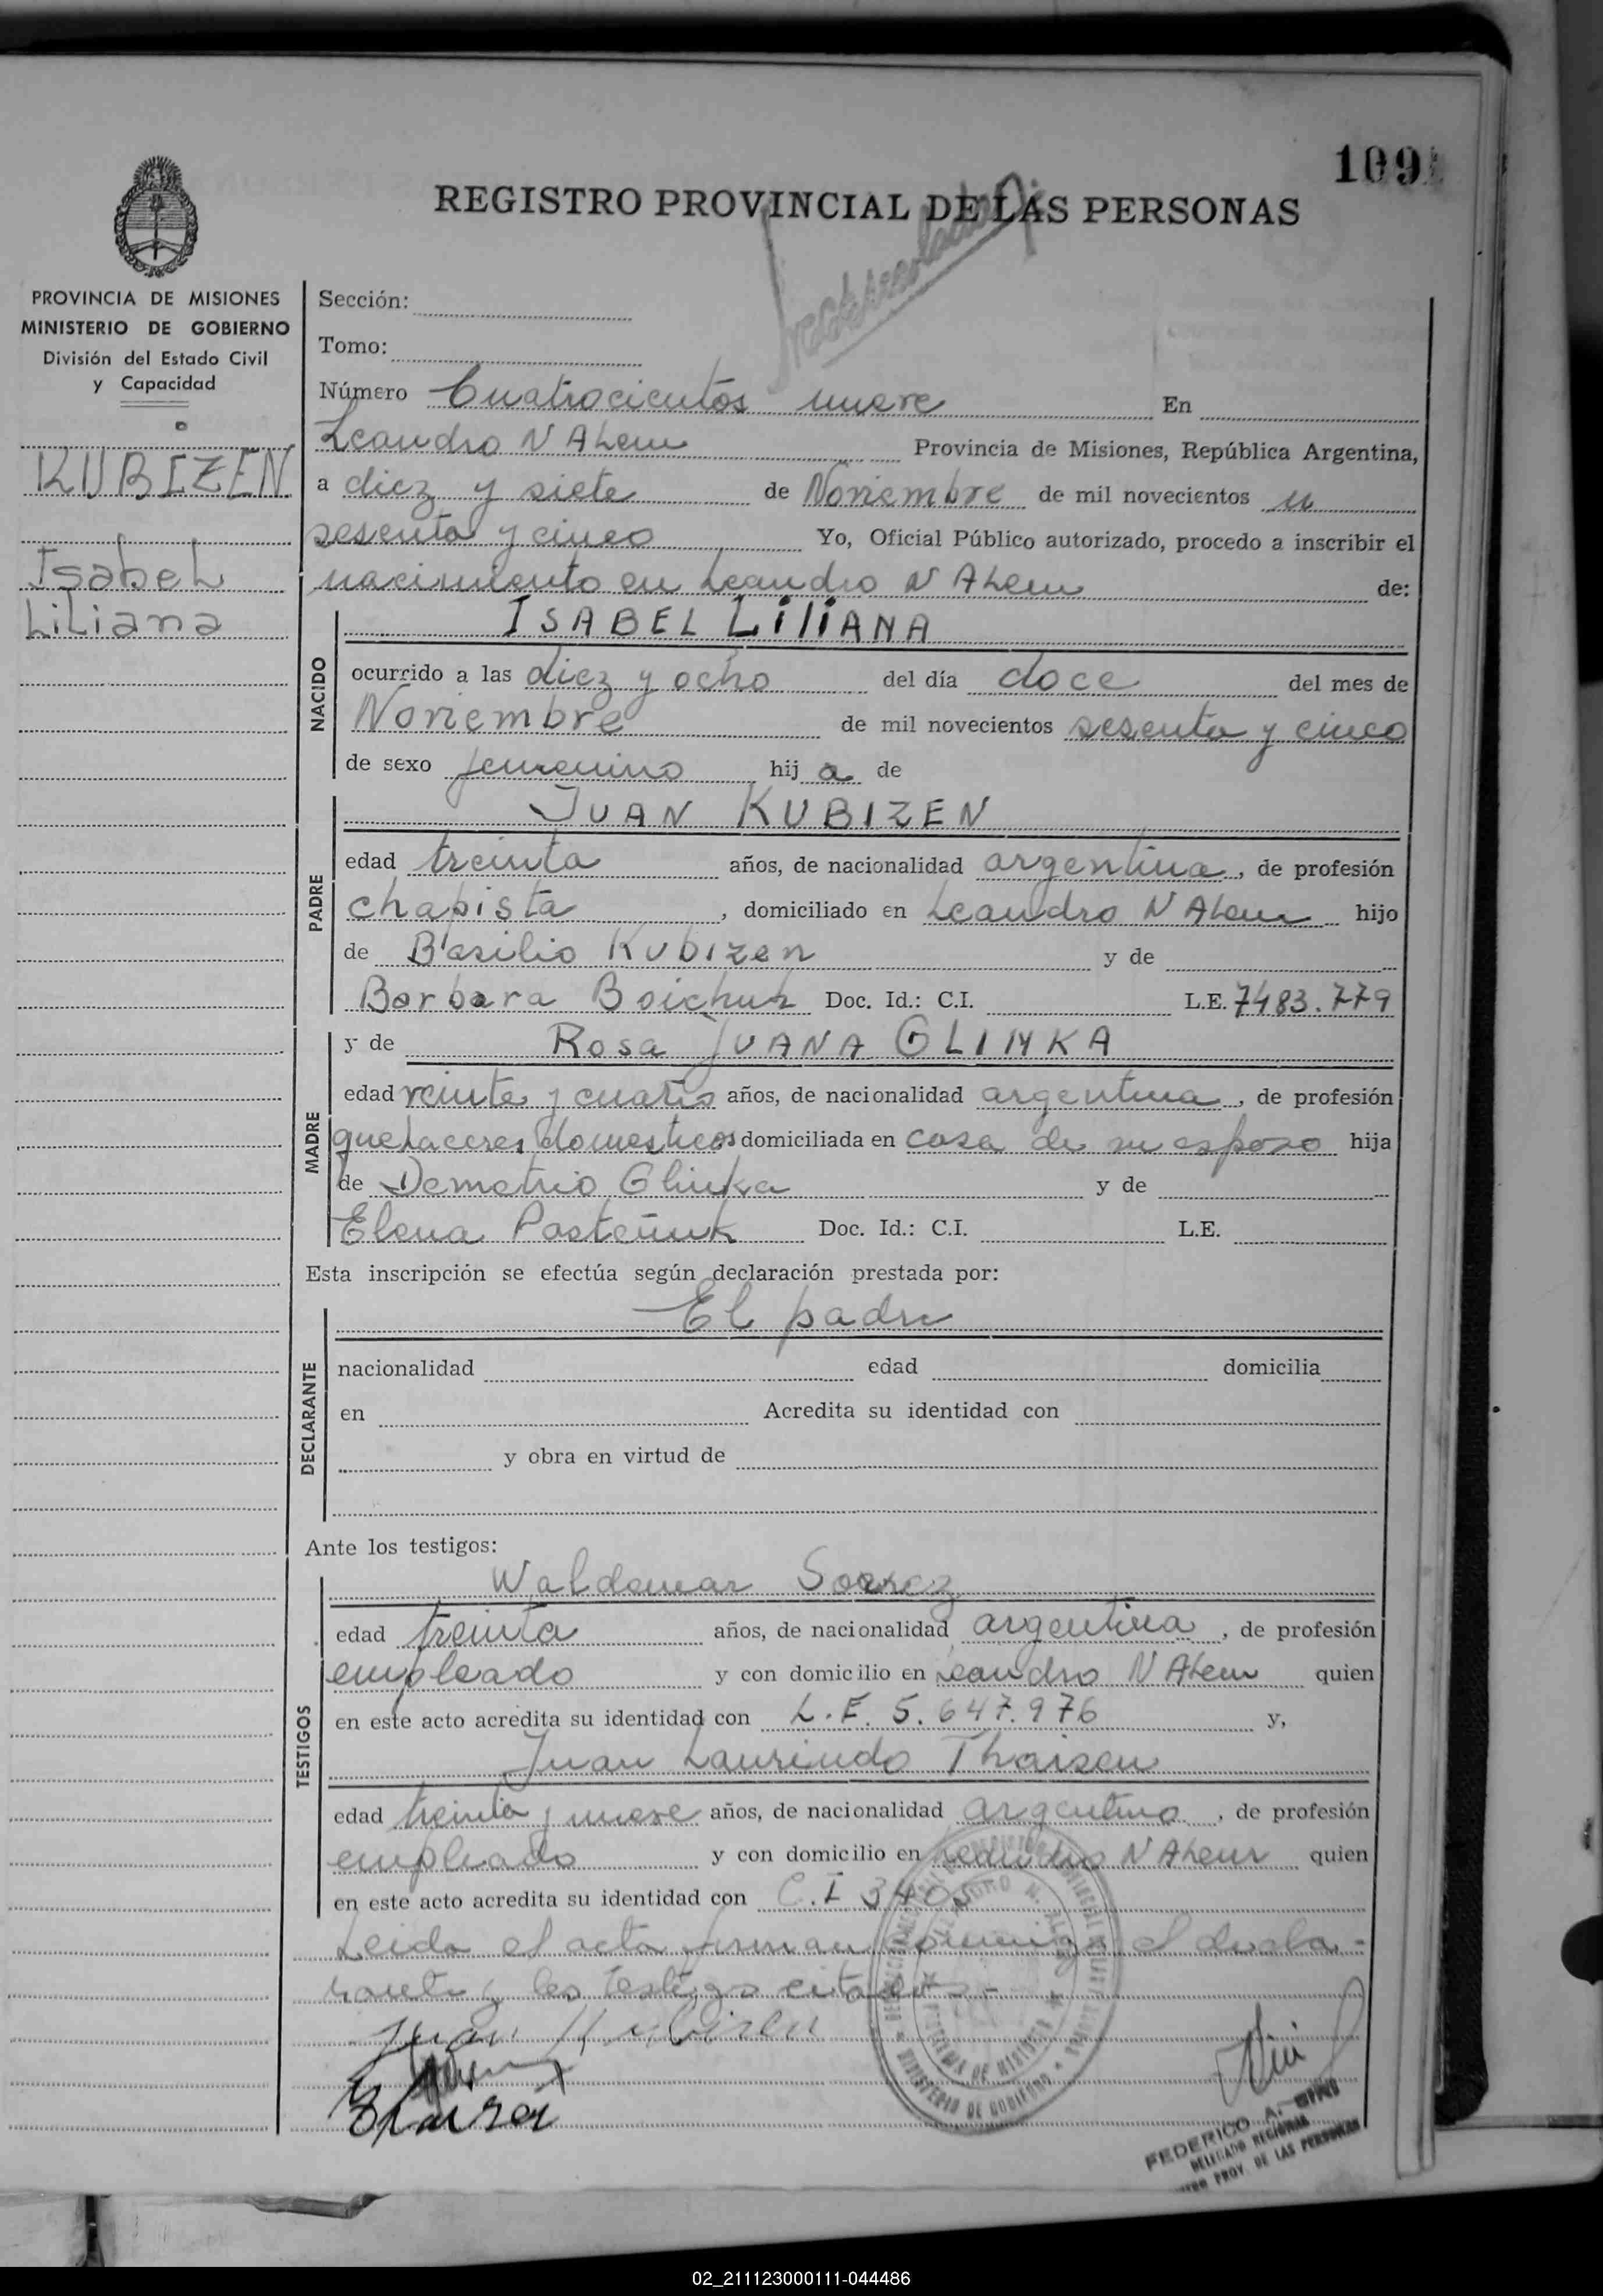 109
REGISTRO PROVINCIAL DE LAS PERSONAS
PROVINCIA DE MISIONES
MINISTERIO DE GOBIERNO
División del Estado Civil
y Capacidad
KUBIZEN
Isabel
Liliana
Sección:
Tomo:
Número Cuatrocientos nueve En
Leandro N Alem Provincia de Misiones, República Argentina,
a diez y siete de Noviembre de mil novecientos
sesenta y cinco Yo, Oficial Público autorizado, procedo a inscribir el
nacimiento en Leandro N Alem de:
NACIDO
ISABEL LiliANA
ocurrido a las diez y ocho del día doce del mes de
Noviembre de mil novecientos sesenta y cinco
de sexo femenino hij a de
PADRE
JUAN KUBIZEN
edad treinta años, de nacionalidad argentina, de profesión
chapista, domiciliado en Leandro N Alem hijo
de Basilio Kubizen y de
Barbara Boichuk Doc. Id.: C.I. L.E. 7483.779
MADRE
y de Rosa JUANA GLINKA
edad veinte y cuatro años, de nacionalidad argentina, de profesión
quehaceres domesticos domiciliada en casa de su esposo hija
de Demetrio Glinka y de
Elena Doc. Id.: C.I. L.E.
Esta inscripción se efectúa según declaración prestada por:
DECLARANTE
El padre
nacionalidad edad domicilia
en Acredita su identidad con
y obra en virtud de
Ante los testigos:
TESTIGOS
Waldemar
edad treinta años, de nacionalidad argentina, de profesión
empleado y con domicilio en Leandro N Alem quien
en este acto acredita su identidad con L.E. 5.647.976 y,
Juan Laurindo Thaisen
edad treinta y nueve años, de nacionalidad argentino, de profesión
empleado y con domicilio en Leandro N Alem quien
en este acto acredita su identidad con C.I 3405
Leida el acta firman conmigo el decla-
rante y los testigos citados.-
Juan Kubizen
MINISTERIO DE GOBIERNO
PROVINCIA DE MISIONES
FEDERICO A.
DELEGADO REGIONAL
PROV. DE LAS PERSONAS
02_211123000111-044486